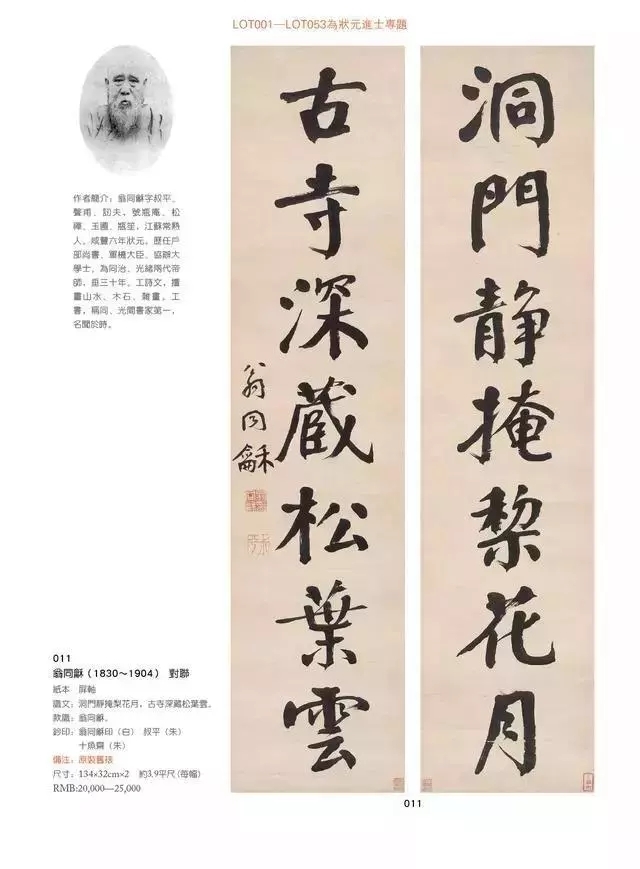 LOT001—LOT053為狀元進士專題
洞門靜掩棃花月
古寺深藏松葉雲
翁同龢
作者簡介：翁同龢字叔平、
聲甫、訒夫，號瓶庵、松
禪、玉圃、瓶笙，江蘇常熟
人。咸豐六年狀元。歷任戶
部尚書、軍機大臣、協辦大
學士，為同治、光緒兩代帝
師，垂三十年。工詩文，擅
畫山水、木石、雜畫。工
書，稱同、光間書家第一，
名聞於時。
011
翁同龢（1830～1904） 對聯
紙本 屏軸
識文：洞門靜掩梨花月，古寺深藏松葉雲。
款識：翁同龢。
鈐印：翁同龢印（白） 叔平（朱）
十魚齋（朱）
備注：原裝舊裱
尺寸：134×32cm×2 約3.9平尺(每幅)
RMB:20,000—25,000
011